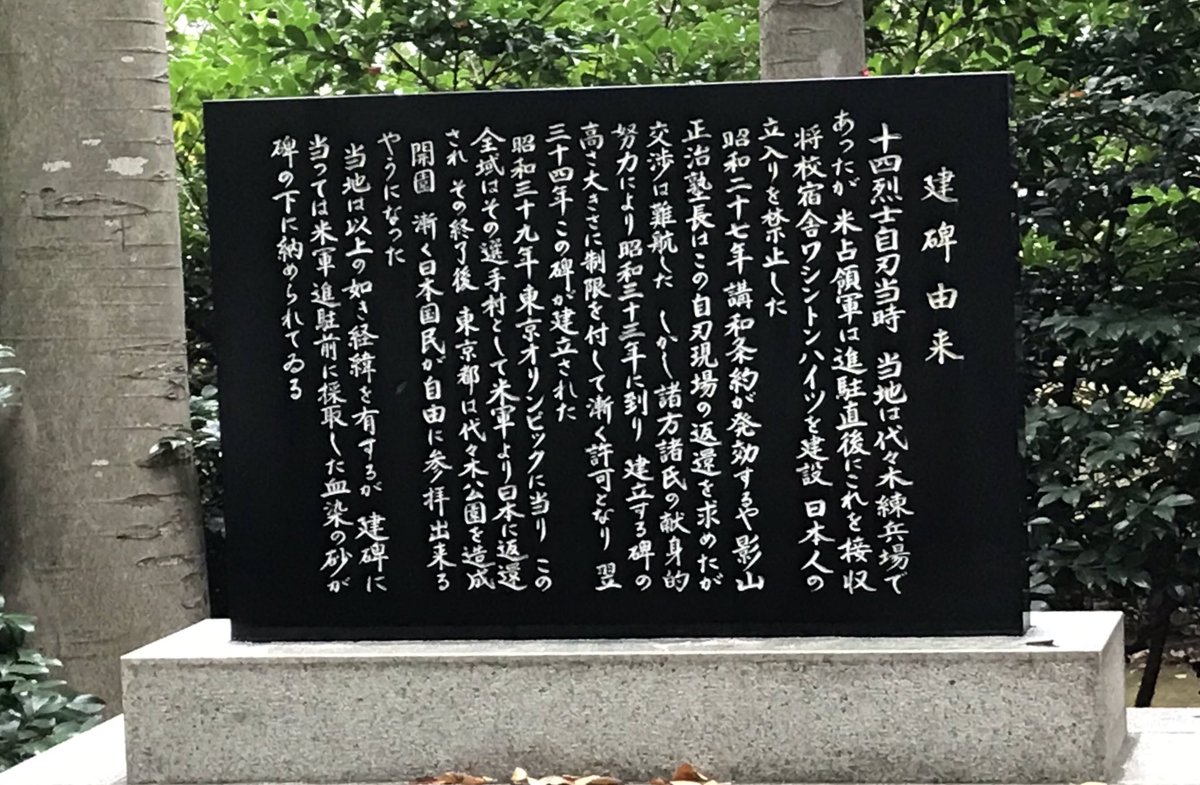 建碑由来
十四烈士自刃当時　当地は代々木練兵場で
あったが　米占領軍は進駐直後にこれを接収
将校宿舎ワシントンハイツを建設　日本人の
立入りを禁止した
昭和二十七年講和条約が発効するや影山
正治塾長はこの自刃現場の返還を求めたが
交渉は難航した　しかし諸方諸氏の献身的
努力により昭和三十三年に到り　建立する碑の
高さ大きさに制限を付して漸く許可となり　翌
三十四年この碑が建立された
昭和三十九年　東京オリンピックに当り　この
全域はその選手村として米軍より日本に返還
され　その終了後　東京都は代々木公園を造成
開園　漸く日本国民が自由に参拝出来る
やうになった
当地は以上の如き経緯を有するが　建碑に
当っては米軍進駐前に採取した血染の砂が
碑の下に納められてゐる